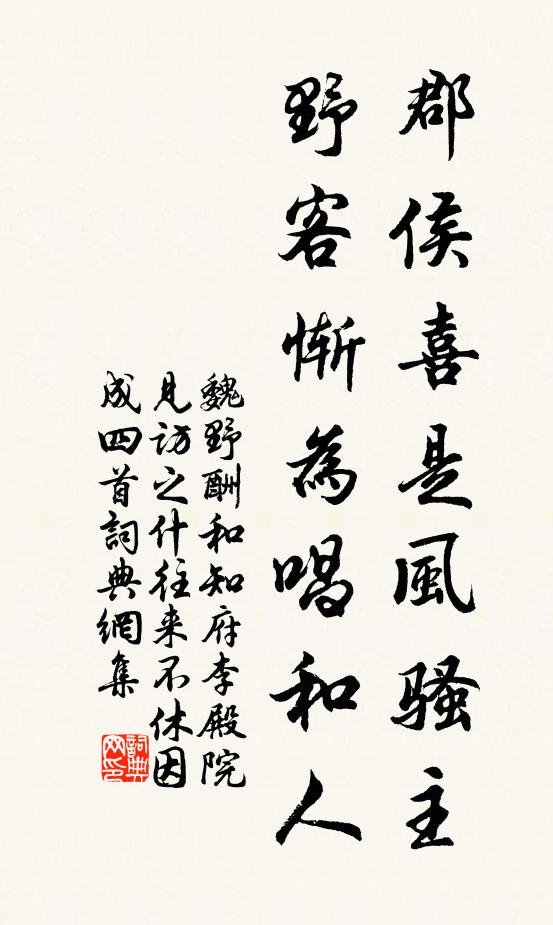 郡侯喜是風騷主
野客慚為唱和人
魏野酬和知府李殿院
見訪之什往来不休因
成四首詞典網集
詞典
网印